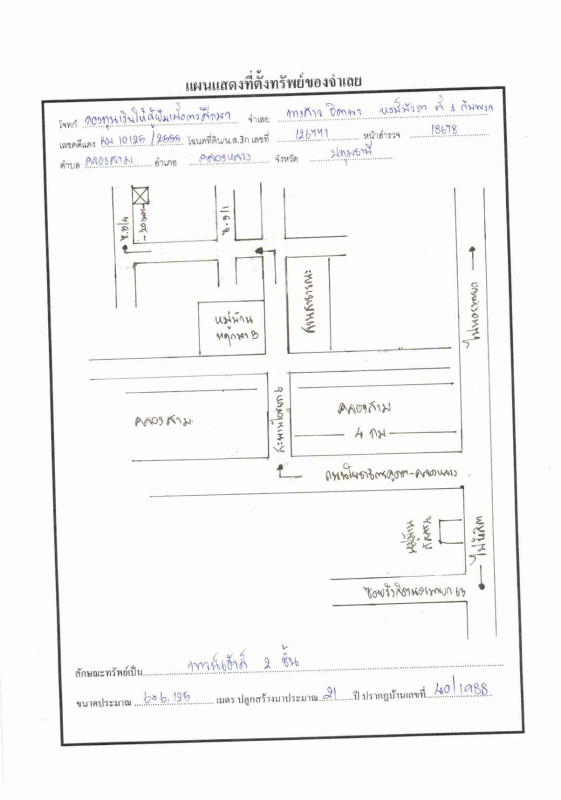 แผนแสดงที่ตั้งทรัพย์ของจำเลย
โจทก์ กองทุนเงินให้กู้ยืมเพื่อการศึกษา จำเลย นางสาว ที่ 1 กับพวก
เลขคดีแดง 10125/2555 โฉนดที่ดิน/น.ส.3ก เลขที่ 126441 หน้าสำรวจ 18678
ตำบล คลองสาม อำเภอ คลองหลวง จังหวัด ปทุมธานี
ซ.ข/4
ซ.ข/1
หมู่บ้าน
พฤกษา B
สวนสาธารณะ
ไปนครนายก
คลองสาม
คลองสาม
4 กม
หมู่บ้าน
ไปรังสิต
ซอยรังสิตนครนายก 63
ลักษณะทรัพย์เป็น ทาวน์เฮ้าส์ 2 ชั้น
ขนาดประมาณ เมตร ปลูกสร้างมาประมาณ 21 ปี ปรากฏบ้านเลขที่ 40/1988